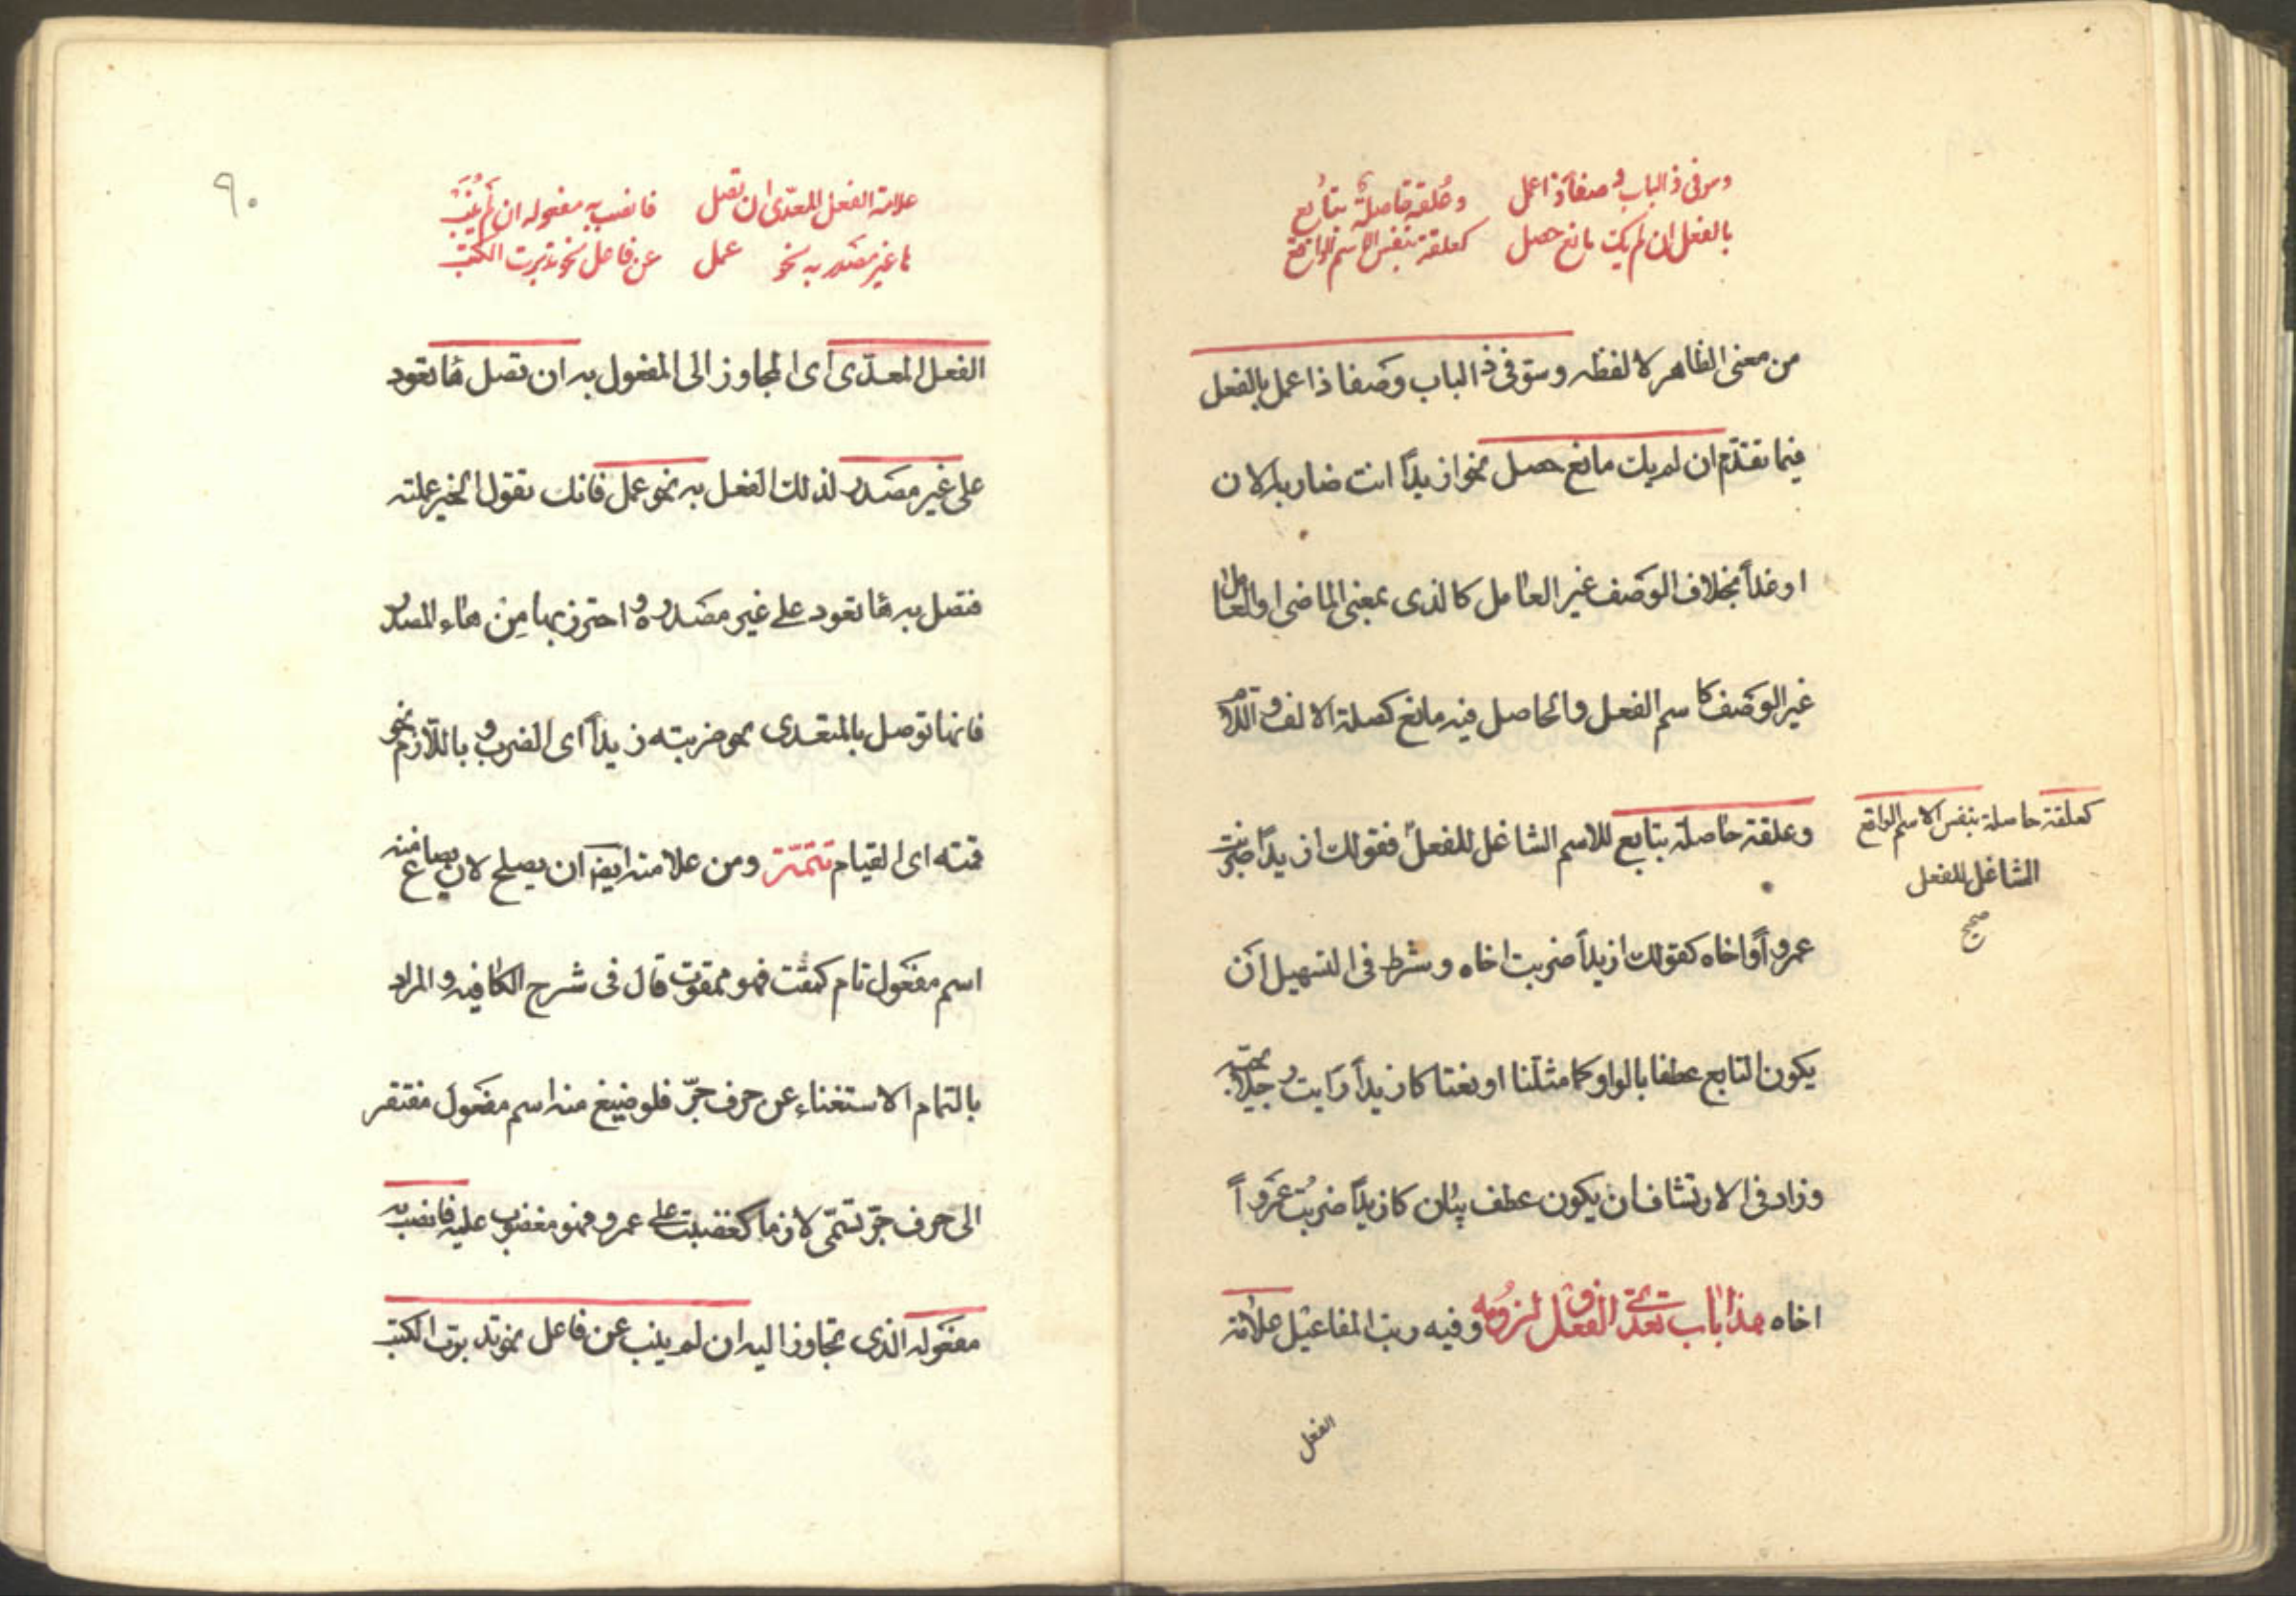 وسوفی ذ الباب وصفا ذا عمل
بالفعل ان لم یک مانع حصل
وعلقة حاصلة بتابع
کعلقة بنفس الاسم الواقع
من معنی الظاهر لا لفظه وسوفی ذ الباب وصفا ذا عمل بالفعل
فیما تقدّم ان لم یک مانع حصل نحو ازیداً انت ضاربه الان
او غداً بخلاف الوصف غیر العامل کالذی بمعنی الماضی او العامل
غیر الوصف کاسم الفعل والحاصل فیه مانع کصلة الالف واللام
وعلقة حاصلة بتابع للاسم الشاغل للفعل فقولک ازیداً ضربت
عمرواً واخاه کقولک ازیداً ضربت اخاه وشرط فی التسهیل ان
یکون التابع عطفا بالواو کما مثلنا او نعتا کازیداً رایت رجلا یحبّه
وزاد فی الارتشاف ان یکون عطف بیان کازیداً ضربت عمرواً
اخاه هذا باب تعدّی الفعل ولزومه وفیه رتب المفاعیل علامة
کعلقة حاصلة بنفس الاسم الواقع
الشاغل للفعل
صح
الفعل
۹۰
علامة الفعل المعدّی ان تصل
ها غیر مصدر به نحو عمل
فانصب به مفعوله ان لم ینب
عن فاعل نحو تدبرت الکتب
الفعل المعدّی ای المجاوز الی المفعول به ان تصل ها تعود
علی غیر مصدر لذلک الفعل به نحو عمل فانک تقول الخیر عملته
فتصل به ها تعود علی غیر مصدره واحترز بها من هاء المصدر
فانها توصل بالمتعدی نحو ضربته زیداً ای الضرب وباللّازم نحو
قمته ای القیام تتمّة ومن علامته ایضا ان یصلح لان یصاغ منه
اسم مفعول تام کمقت فهو ممقوت قال فی شرح الکافیه والمراد
بالتمام الاستغناء عن حرف جرّ فلو صیغ منه اسم مفعول مفتقر
الی حرف جرّ تسمّی لازما کغضبت علی عمرو فهو مغضوب علیه فانصب به
مفعوله الذی تجاوز الیه ان لم ینب عن فاعل نحو تدبرت الکتب